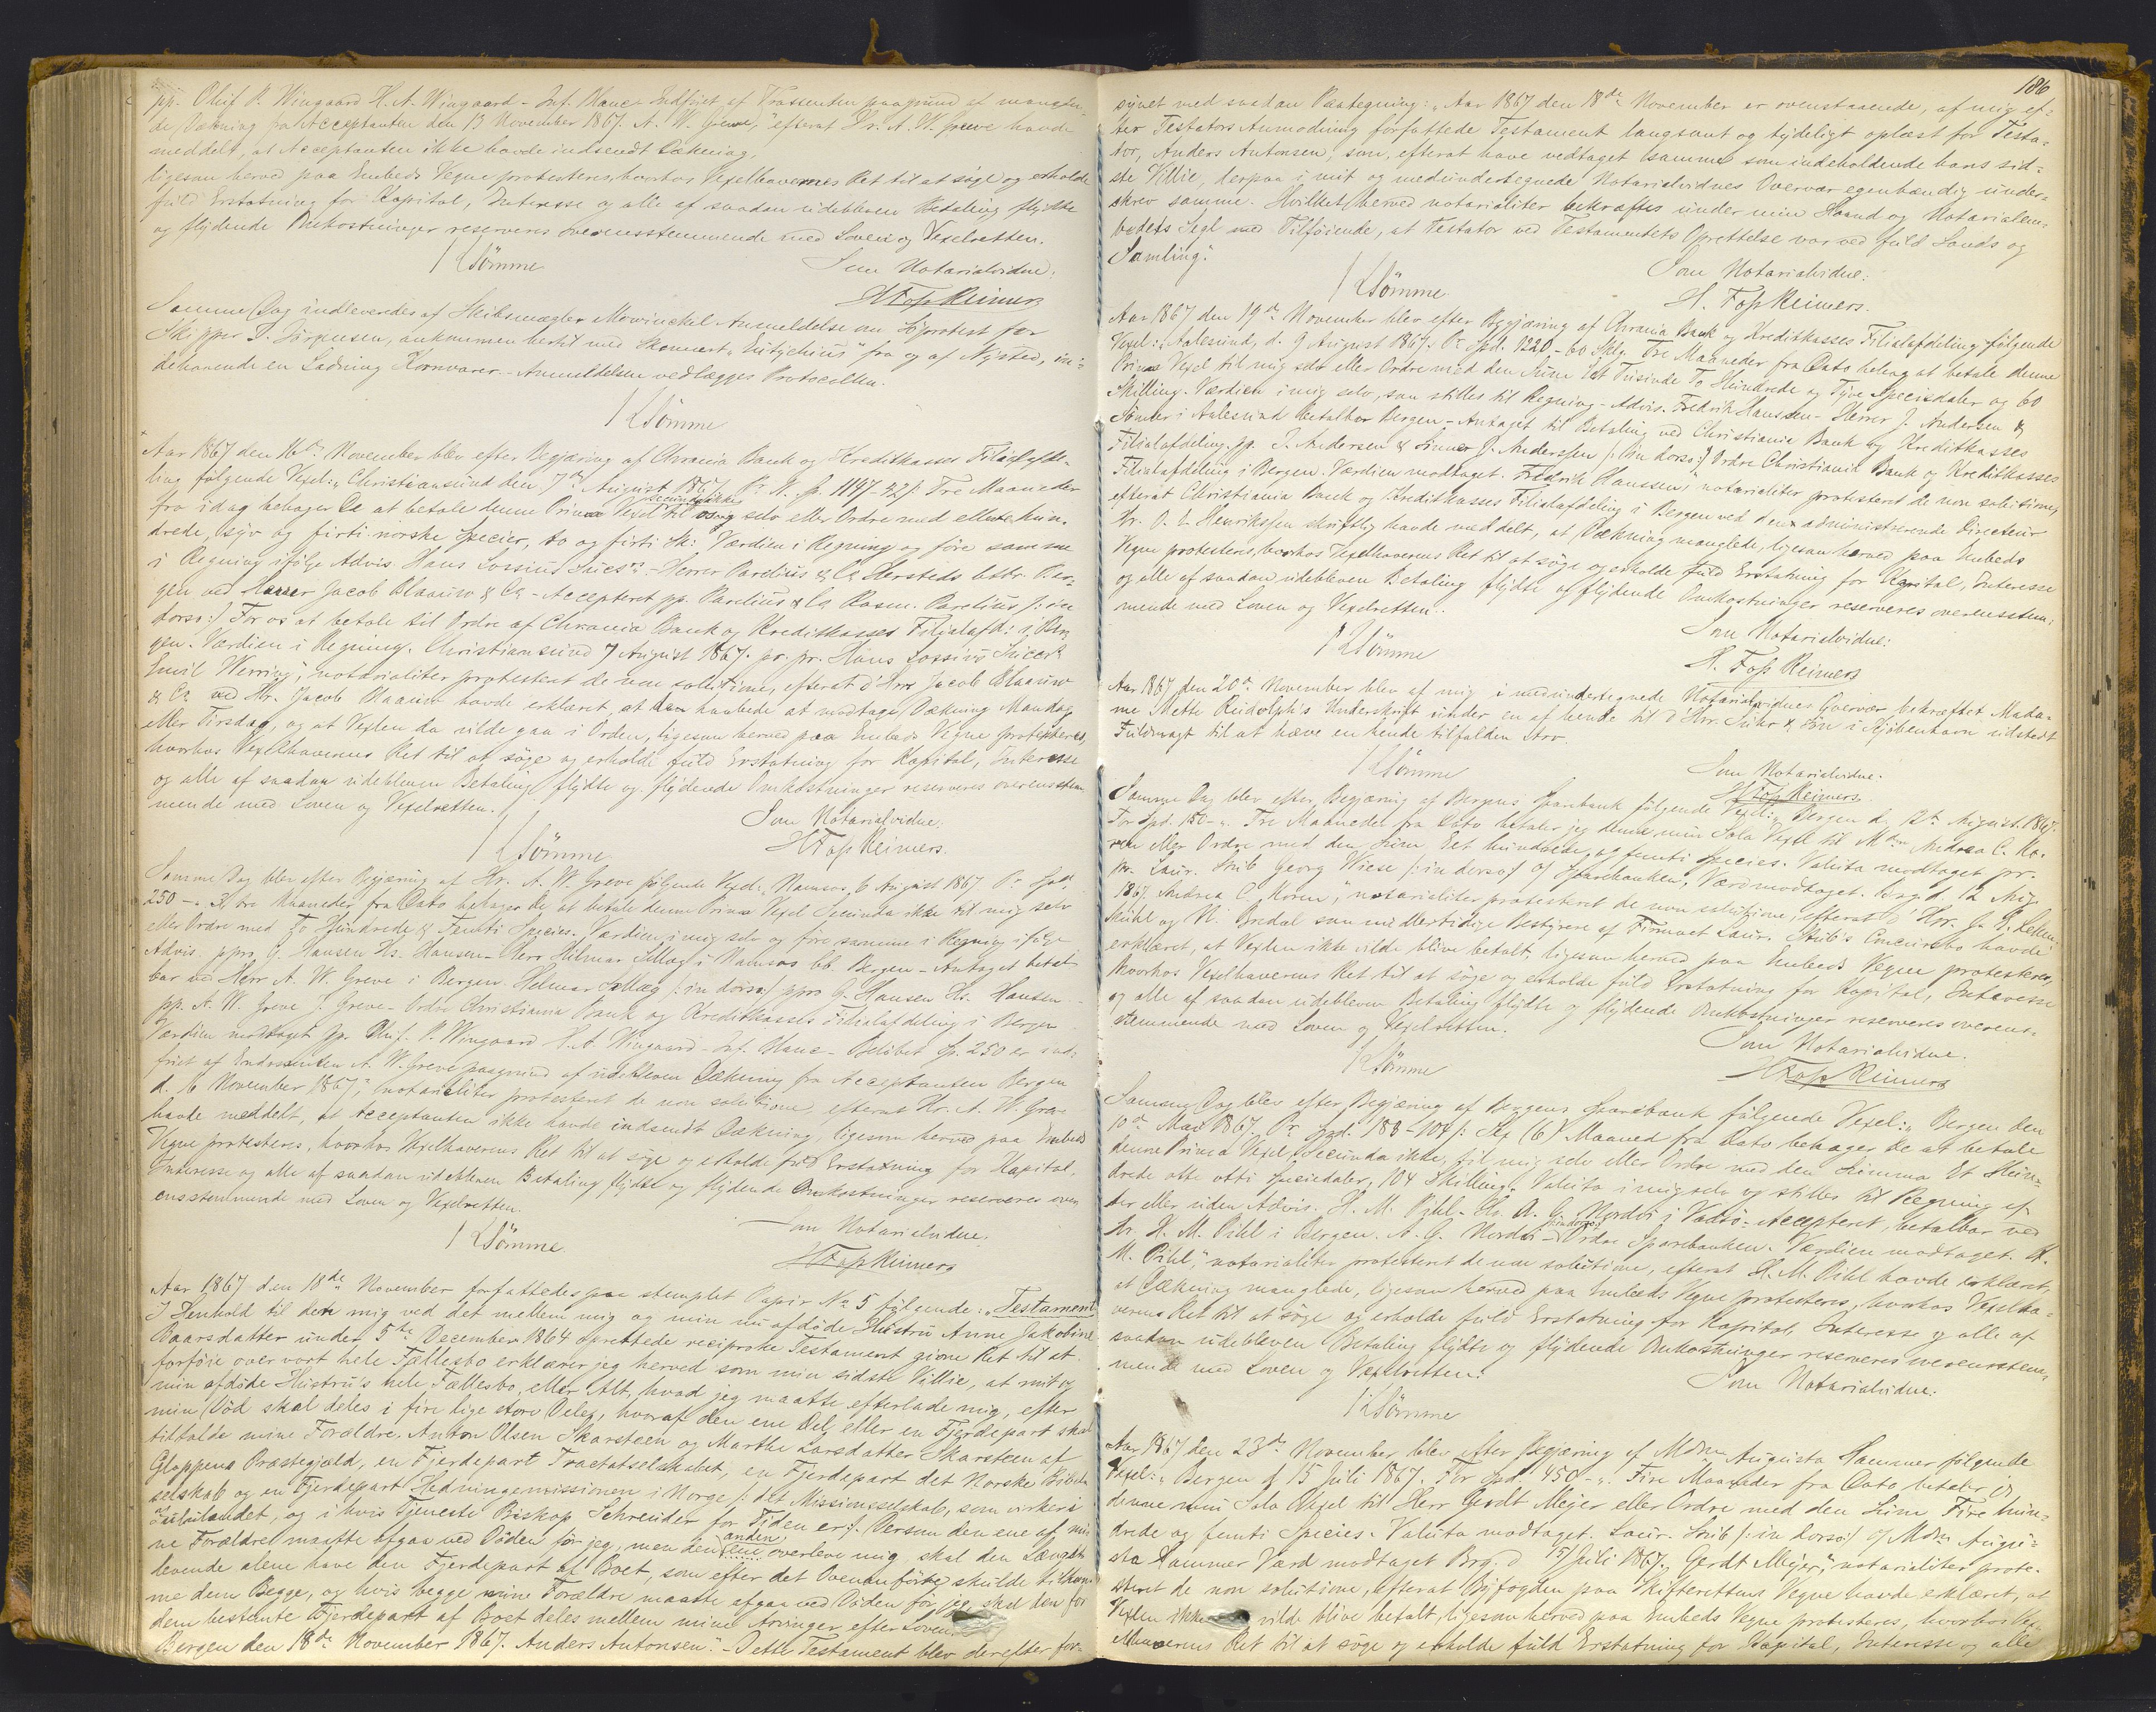 pp. Oluf P. Wingaard H. A. Wingaard - Inf. Blanc. Indfriet af Trassenten paagrund af manglen-
de Dækning fra Acceptanten den 13 November 1867. A. W. Greve," efterat Hr. A. W. Greve havde
meddelt, at Acceptanten ikke havde indsendt Dækning,
ligesom herved paa Embeds Vegne protesteres, hvorhos Vexelhavernes Ret til at søge og erholde
fuld Erstatning for Kapital, Interesse og alle af saadan udebleven Betaling flydte
og flydende Omkostninger reserveres overensstemmende med Loven og Vexelretten.
Sömme
Som Notarialvidne:
H Foss Reimers
Samme Dag indleveredes af Skibsmægler Mowinckel Anmeldelse om Söprotest for
Skipper P. Jörgensen, ankommen hertil med Skonnert "Eutychius" fra og af Nysted, in-
dehavende en Ladning Kornvarer. - Anmeldelsen vedlægges Protocollen.
Sömme
Aar 1867 den 16de November blev efter Begjæring af Chrania Bank og Kreditkasses Filialafde-
ling følgende Vexel: "Christiansund den 7de August 1867. Pr. N. Sp. 1147-42 /: Tre Maaneder
fra idag behager De at betale denne Prima Vexel secunda ikke til os selv eller Ordre med ellevehun-
drede, syv og firti norske Specier, to og firti Sk: Værdien i Regning og före samme
i Regning ifölge Advis. Hans Lossius Succs. - Herrer Parelius & Co Hersteds betlr. Ber-
gen ved Herrer Jacob Blaauw & Co - Accepteret pp. Parelius & Co Rasm. Parelius /: in
dorso:/ For os at betale til Ordre af Chrania Bank og Kreditkasses Filialafd: i Ber-
gen. Værdien i Regning. Christiansund 7 August 1867. pr. pr. Hans Lossius Succs.
Emil Werring", notarialiter protesteret de non solutione, efterat d'Hrr Jacob Blaauw
& Co ved Hr. Jacob Blaauw havde erklæret, at han haabede at modtage Dækning Mandag
eller Tirsdag, og at Vexlen da vilde gaa i Orden, ligesom herved paa Embeds Vegne protesteres,
hvorhos Vexelhaverens Ret til at søge og erholde fuld Erstatning for Kapital, Interesse
og alle af saadan udebleven Betaling flydte og flydende Omkostninger reserveres overensstem-
mende med Loven og Vexelretten.
Som Notarialvidne:
Sömme
H Foss Reimers.
Samme Dag blev efter Begjæring af Hr. A. W. Greve følgende Vexel: "Namsos, 6 August 1867. Pr. Spd.
250 -. Tre Maaneder fra Dato behager De at betale denne Prima Vexel Secunda ikke til mig selv
eller Ordre med To Hundrede & Femti Species. Værdien i mig selv og före samme i Regning ifölge
Advis ppro G. Hansen Hs. Hansen - Herr Helmar Sellæg i Namsos bb. Bergen - Antaget betal-
bar ved Herr A. W. Greve i Bergen. Helmar Sellæg /: in dorso:/ ppro G. Hansen Hs. Hansen -
pp. A. W. Greve J. Greve - Ordre Christiania Bank og Kreditkasses Filialafdeling i Bergen
Værdien modtaget pp. Oluf P. Wingaard H. A. Wingaard - inf. Blanc - Belöbet Sp. 250 er ind-
friet af Endossenten A. W. Greve paagrund af udebleven Dækning fra Acceptanten Bergen
d. 16 November 1867," notarialiter protesteret de non solutione, efterat Hr. A. W. Greve
havde meddelt, at Acceptanten ikke havde indsendt Dækning, ligesom herved paa Embeds
Vegne protesteres, hvorhos Vexelhaverens Ret til at søge og erholde fuld Erstatning for Kapital,
Interesse og alle af saadan udebleven Betaling flydte og flydende Omkostninger reserveres over-
ensstemmende med Loven og Vexelretten.
Som Notarialvidne.
Sömme
H Foss Reimers
Aar 1867 den 18de November forfattedes paa stemplet Papir No 5 følgende: "Testament
I Henhold til den mig ved det mellem mig og min nu afdöde Hustru Anne Jakobine
Baarsdatter under 5te December 1864 oprettede reciproke Testament givne Ret til at
forföie over vort hele Fællesbo erklærer jeg herved som min sidste Villie, at mit og
min afdöde Hustru's hele Fællesbo, eller Alt, hvad jeg maatte efterlade mig, efter
min Död skal deles i fire lige store Dele, hvoraf den ene Del, eller en Fjerdepart skal
tilfalde mine Forældre, Anton Olsen Skarsteen og Marthe Larsdatter Skarsteen af
Gloppens Præstegjæld, en Fjerdepart Tractatselskabet, en Fjerdepart det Norske Bibel-
selskab og en Fjerdepart Hedningemissionen i Norge /: det Missionsselskab, som virker i
Zululandet, og i hvis Tjeneste Biskop Schreuder for Tiden er :/. Dersom den ene af mi-
ne Forældre maatte afgaa ved Döden før jeg, men den anden ene overleve mig, skal den Længst-
levende alene have den Fjerdepart af Boet, som efter det Ovenanförte skulde tilkom-
me dem Begge, og hvis begge mine Forældre maatte afgaa ved Döden før jeg, skal den for
dem bestemte Fjerdepart af Boet deles mellem mine Arvinger efter Loven.
Bergen den 18de November 1867. Anders Antonsen." - Dette Testament blev derefter for-
186
synet med saadan Paategning: "Aar 1867 den 18de November er ovenstaaende, af mig ef-
ter Testators Anmodning forfattede Testament langsomt og tydeligt oplæst for Testa-
tor, Anders Antonsen, som, efterat have vedtaget samme som indeholdende hans sid-
ste Villie, derpaa i mit og medundertegnede Notarialvidnes Overvær egenhændig under-
skrev samme. Hvilket herved notarialiter bekræftes under min Haand og Notarialem-
bedets Segl med Tilföiende, at Testator ved Testamentets Oprettelse var ved fuld Sands og
Samling."
Som Notarialvidne:
Sömme
H. Foss Reimers.
Aar 1867 den 19de November blev efter Begjæring af Chrania Bank og Kreditkasses Filialafdeling følgende
Vexel: "Aalesund, d. 9 August 1867. Pr Spd. 1220 - 60 Skg. Tre Maaneder fra Dato behag at betale denne
Prima Vexel til mig selv eller Ordre med den Sum Et Tusinde To Hundrede og Tyve Speciedaler og 60
Skilling. Værdien i mig selv, som stilles til Regning - Advis. Fredrik Hanssen - Herrer J. Andersen &
Sönner i Aalesund betalbar Bergen - Antaget til Betaling ved Christiania Bank og Kreditkasses
Filialafdeling. pp. J. Andersen & Sönner J. Anderssen /: in dorso :/ Ordre Christiania Bank og Kreditkasses
Filialafdeling i Bergen. Værdien modtaget. Fredrik Hanssen," notarialiter protesteret de non solutione,
efterat Christiania Bank og Kreditkasses Filialafdeling i Bergen ved den administrerende Directeur
Hr. O. L. Henrikssen skriftlig havde meddelt, at Dækning manglede, ligesom herved paa Embeds
Vegne protesteres, hvorhos Vexelhaverens Ret til at søge og erholde fuld Erstatning for Kapital, Interesse
og alle af saadan udebleven Betaling flydte og flydende Omkostninger reserveres overensstem-
mende med Loven og Vexelretten.
Som Notarialvidne:
Sömme
H. Foss Reimers
Aar 1867 den 20de November blev af mig i medundertegnede Notarialvidnes Overvær bekræftet Mada-
me Mette Rudolph's Underskrift under en af hende til d'Hrr. Suhr & Sön i Kjöbenhavn udstedt
Fuldmagt til at hæve en hende tilfalden Arv.
Som Notarialvidne.
Sömme
H Foss Reimers.
Samme Dag blev efter Begjæring af Bergens Sparebank følgende Vexel: "Bergen d. 12te August 1867.
For Spd. 150 -. Tre Maaneder fra Dato betaler jeg denne min Sola Vexel til Mdm Andrea C. Ko-
ren eller Ordre med den Sum Eet hundrede og femti Species. Valuta modtaget pr.
pr. Laur. Stub Georg Wiese /: in dorso :/ O/ Sparebanken, Værd modtaget. Brg d. 12 Aug.
1867. Andrea C. Koren," notarialiter protesteret de non solutione, efterat d'Hrr. G. P.
og N. Bredal som midlertidige Bestyrere af Firmaet Laur. Stub's Concursbo havde
erklæret, at Vexlen ikke vilde blive betalt, ligesom herved paa Embeds Vegne protesteres,
hvorhos Vexelhaverens Ret til at søge og erholde fuld Erstatning for Kapital, Interesse
og alle af saadan udebleven Betaling flydte og flydende Omkostninger reserveres overens-
stemmende med Loven og Vexelretten.
Som Notarialvidne.
Sömme
H Foss Reimers
Samme Dag blev efter Begjæring af Bergens Sparebank følgende Vexel: "Bergen den
10de Mai 1867. Pr. Spd. 188-104 /: Sex (6) Maaned fra Dato behager De at betale
denne Prima Vexel, Secunda ikke, til mig selv eller Ordre med den Summa Et Hun-
drede otte otti Speciedaler, 104 Skilling. Valuta i mig selv og stilles til Regning ef-
ter eller uden Advis. H. M. Pihl - Hr. A. G. Nordvi i Vadsö - Accepteret, betalbar ved
Hr. H. M. Pihl i Bergen. A. G. Nordvi - /: in dorso :/ Ordre Sparebanken. Værdien modtaget. H.
M. Pihl," notarialiter protesteret de non solutione, efterat H. M. Pihl havde erklæret,
at Dækning manglede, ligesom herved paa Embeds Vegne protesteres, hvorhos Vexelha-
verens Ret til at søge og erholde fuld Erstatning for Kapital, Interesse og alle af
saadan udebleven Betaling flydte og flydende Omkostninger reserveres overensstem-
mende med Loven og Vexelretten.
Som Notarialvidne.
Sömme
Aar 1867 den 23de November blev efter Begjæring af Mdm Augusta Hammer følgende
Vexel: "Bergen d 15 Juli 1867. For Spd. 450 -. Fire Maaneder fra Dato betaler jeg
denne min Sola Vexel til Herr Gerdt Mejer eller Ordre med den Sum Fire hun-
drede og femti Species. Valuta modtaget. Laur. Stub /: in dorso :/ O/ Mdm Augu-
sta Hammer Værd modtaget Brg. d 15/ Juli 1867. Gerdt Mejer," notarialiter prote-
steret de non solutione, efterat Byfogden paa Skifterettens Vegne havde erklæret, at
Vexlen ikke vilde blive betalt, ligesom herved paa Embeds Vegne protesteres, hvorhos Vex-
elhaverens Ret til at søge og erholde fuld Erstatning for Kapital, Interesse og alle